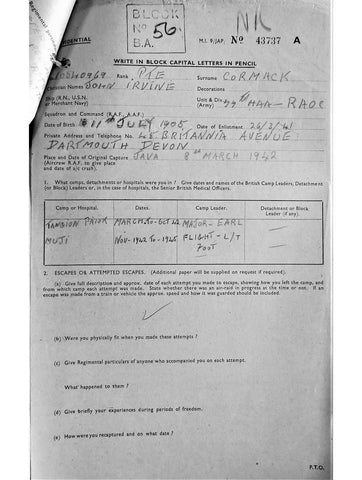 BLOCK
No 56.
B.A.
NR
M.I. 9/JAP. No 43737 A
WRITE IN BLOCK CAPITAL LETTERS IN PENCIL
Rank PTE Surname CORMACK
Christian Names JOHN IRVINE Decorations
Ship (R.N., U.S.N. or Merchant Navy)
Unit & Div. (Army) RAOC
Squadron and Command (R.A.F., A.A.F.)
Date of Birth 11TH JULY 1905 Date of Enlistment 26/2/41
Private Address and Telephone No. 45 BRITANNIA AVENUE
DARTMOUTH DEVON
Place and Date of Original Capture JAVA 8TH MARCH 1942
(Aircrew R.A.F. to give place
and date of a/c crash).
1. What camps, detachments or hospitals were you in? Give dates and names of the British Camp Leaders, Detachment
(or Block) Leaders or, in the case of hospitals, the Senior British Medical Officers.
Camp or Hospital. Dates. Camp Leader. Detachment or Block Leader (if any).
TANDION PRIOK MARCH. TO - OCT 42 MAJOR - EARL
MUJI NOV-1942 TO - 1945 FLIGHT - L/T
FOOT
2. ESCAPES OR ATTEMPTED ESCAPES. (Additional paper will be supplied on request if required).
(a) Give full description and approx. date of each attempt you made to escape, showing how you left the camp, and
from which camp each attempt was made. State whether there was an air-raid in progress at the time or not. If an
escape was made from a train or vehicle the approx. speed and how it was guarded should be included.
(b) Were you physically fit when you made these attempts?
(c) Give Regimental particulars of anyone who accompanied you on each attempt.
What happened to them?
(d) Give briefly your experiences during periods of freedom.
(e) How were you recaptured and on what date?
P.T.O.